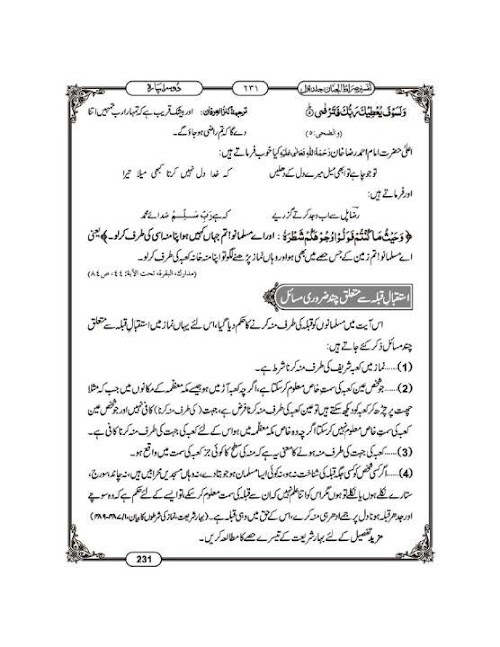 تفسیر صراط الجنان جلد اول
٢٣١
دوسرا پارہ
وَلَسَوْفَ يُعْطِيْكَ رَبُّكَ فَتَرْضٰى
ترجمۂ کنزالعرفان: اور بیشک قریب ہے کہ تمہارا رب تمہیں اتنا
(والضحی:٥)
دے گا کہ تم راضی ہوجاؤ گے۔
اعلیٰ حضرت امام احمد رضا خان رَحْمَةُ اللهِ تَعَالٰی عَلَيْهِ کیا خوب فرماتے ہیں:
تو جو چاہے تو ابھی میل میرے دل کے دھلیں
کہ خدا دل نہیں کرتا کبھی میلا تیرا
اور فرماتے ہیں:
رضا پل سے اب وجد کرتے گزریے
کہ ہے رَبِّ سَلِّمْ صدائے محمد
﴿وَحَيْثُ مَا كُنْتُمْ فَوَلُّوْا وُجُوْهَكُمْ شَطْرَهٗ: اور اے مسلمانو! تم جہاں کہیں ہو اپنا منہ اسی کی طرف کرلو۔﴾ یعنی
اے مسلمانو! تم زمین کے جس حصے میں بھی ہو اور وہاں نماز پڑھنے لگو تو اپنا منہ خانہ کعبہ کی طرف کرلو۔
(مدارک، البقرة، تحت الآیة: ١٤٤، ص٨٤)
استقبالِ قبلہ سے متعلق چند ضروری مسائل
اس آیت میں مسلمانوں کو قبلہ کی طرف منہ کرنے کا حکم دیا گیا، اس لئے یہاں نماز میں استقبالِ قبلہ سے متعلق
چند مسائل ذکر کئے جاتے ہیں:
(1)……نماز میں کعبہ شریف کی طرف منہ کرنا شرط ہے۔
(2)……جو شخص عین کعبہ کی سمت خاص معلوم کر سکتا ہے، اگرچہ کعبہ آڑ میں ہو جیسے مکہ معظمہ کے مکانوں میں جب کہ مثلاً
چھت پر چڑھ کر کعبہ کو دیکھ سکتے ہیں تو عین کعبہ کی طرف منہ کرنا فرض ہے، جہت (کی طرف منہ کرنا) کافی نہیں اور جو شخص عین
کعبہ کی سمت خاص معلوم نہیں کر سکتا اگرچہ وہ خاص مکہ معظمہ میں ہو اس کے لئے کعبہ کی جہت کی طرف منہ کرنا کافی ہے۔
(3)……کعبہ کی جہت کی طرف منہ ہونے کا معنی یہ ہے کہ منہ کی سطح کا کوئی جز کعبہ کی سمت میں واقع ہو۔
(4)……اگر کسی شخص کو کسی جگہ قبلہ کی شناخت نہ ہو، نہ کوئی ایسا مسلمان ہو جو بتا دے، نہ وہاں مسجدیں محرابیں ہیں، نہ چاند، سورج،
ستارے نکلے ہوں یا نکلے تو ہوں مگر اس کو اتنا علم نہیں کہ ان سے قبلہ کی سمت معلوم کر سکے، تو ایسے کے لئے حکم ہے کہ وہ سوچے
اور جدھر قبلہ ہونا دل پر جمے ادھر ہی منہ کرے، اس کے حق میں وہی قبلہ ہے۔ (بہار شریعت، نماز کی شرطوں کا بیان، ٤٨٧/١-٤٨٩)
مزید تفصیل کے لئے بہار شریعت کے تیسرے حصے کا مطالعہ کریں۔
231